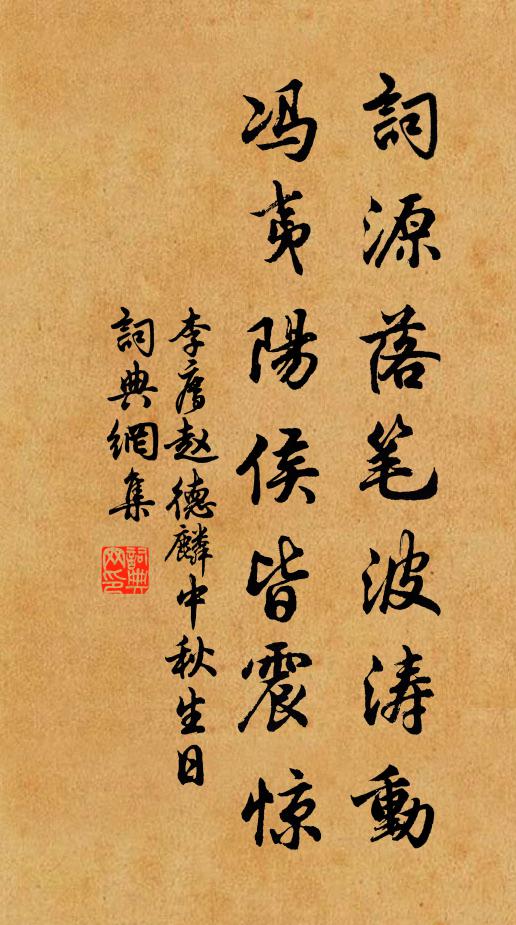 詞源落笔波涛動
冯夷陽侯皆震惊
李廌赵德麟中秋生日
詞典網集
詞典網印